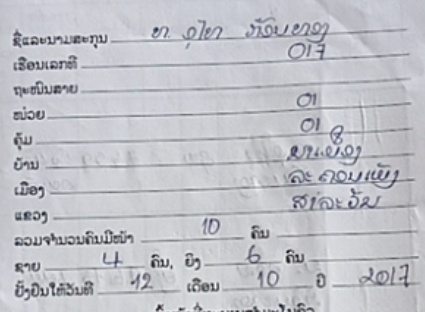 ຊື່ແລະນາມສະກຸນ ທ. ຈຸໄທ
ເຮືອນເລກທີ 017
ຖະໜົນສາຍ
ໜ່ວຍ 01
ຄຸ້ມ 01
ບ້ານ
ເມືອງ ລະຄອນເພັງ
ແຂວງ ສາລະວັນ
ລວມຈຳນວນຄົນມີໜ້າ 10 ຄົນ
ຊາຍ 4 ຄົນ, ຍິງ 6 ຄົນ
ຍັ້ງຢືນໃຫ້ວັນທີ 12 ເດືອນ 10 ປີ 2017